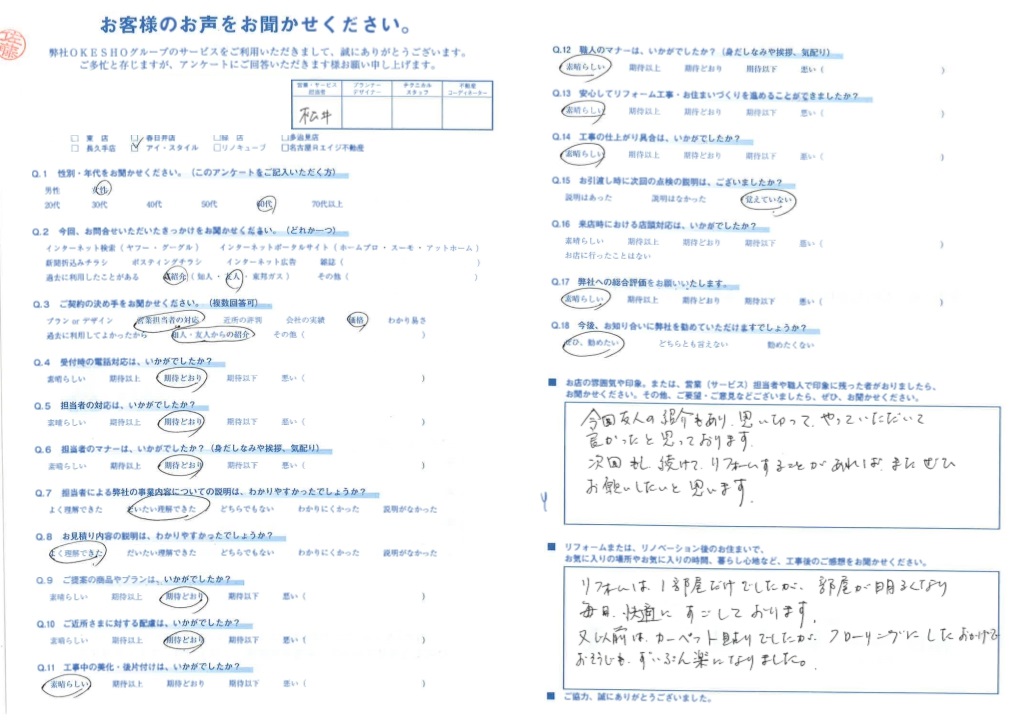 お客様のお声をお聞かせください。
佐藤
弊社OKESHOグループのサービスをご利用いただきまして、誠にありがとうございます。
ご多忙と存じますが、アンケートにご回答いただきます様お願い申し上げます。
営業・サービス担当者 プランナーデザイナー テクニカルスタッフ 不動産コーディネーター
松井
□ 東 店 □ 春日井店 □緑 店 □多治見店
□ 長久手店 □ アイ・スタイル □リノキューブ □名古屋Rエイジ不動産
Q.1 性別・年代をお聞かせください。（このアンケートをご記入いただく方）
男性 女性
20代 30代 40代 50代 60代 70代以上
Q.2 今回、お問合せいただいたきっかけをお聞かせください。（どれか一つ）
インターネット検索（ ヤフー・グーグル ） インターネットポータルサイト（ ホームプロ・スーモ・アットホーム ）
新聞折込みチラシ ポスティングチラシ インターネット広告 雑誌（ ）
過去に利用したことがある ご紹介（ 知人・友人・東邦ガス ） その他（ ）
Q.3 ご契約の決め手をお聞かせください。（複数回答可）
プラン or デザイン 営業担当者の対応 近所の評判 会社の実績 価格 わかり易さ
過去に利用してよかったから 知人・友人からの紹介 その他（ ）
Q.4 受付時の電話対応は、いかがでしたか？
素晴らしい 期待以上 期待どおり 期待以下 悪い（ ）
Q.5 担当者の対応は、いかがでしたか？
素晴らしい 期待以上 期待どおり 期待以下 悪い（ ）
Q.6 担当者のマナーは、いかがでしたか？（身だしなみや挨拶、気配り）
素晴らしい 期待以上 期待どおり 期待以下 悪い（ ）
Q.7 担当者による弊社の事業内容についての説明は、わかりやすかったでしょうか？
よく理解できた だいたい理解できた どちらでもない わかりにくかった 説明がなかった
Q.8 お見積り内容の説明は、わかりやすかったでしょうか？
よく理解できた だいたい理解できた どちらでもない わかりにくかった 説明がなかった
Q.9 ご提案の商品やプランは、いかがでしたか？
素晴らしい 期待以上 期待どおり 期待以下 悪い（ ）
Q.10 ご近所さまに対する配慮は、いかがでしたか？
素晴らしい 期待以上 期待どおり 期待以下 悪い（ ）
Q.11 工事中の美化・後片付けは、いかがでしたか？
素晴らしい 期待以上 期待どおり 期待以下 悪い（ ）
Q.12 職人のマナーは、いかがでしたか？（身だしなみや挨拶、気配り）
素晴らしい 期待以上 期待どおり 期待以下 悪い（ ）
Q.13 安心してリフォーム工事・お住まいづくりを進めることができましたか？
素晴らしい 期待以上 期待どおり 期待以下 悪い（ ）
Q.14 工事の仕上がり具合は、いかがでしたか？
素晴らしい 期待以上 期待どおり 期待以下 悪い（ ）
Q.15 お引渡し時に次回の点検の説明は、ございましたか？
説明はあった 説明はなかった 覚えていない
Q.16 来店時における店頭対応は、いかがでしたか？
素晴らしい 期待以上 期待どおり 期待以下 悪い（ ）
お店に行ったことはない
Q.17 弊社への総合評価をお願いいたします。
素晴らしい 期待以上 期待どおり 期待以下 悪い（ ）
Q.18 今後、お知り合いに弊社を勧めていただけますでしょうか？
ぜひ、勧めたい どちらとも言えない 勧めたくない
■ お店の雰囲気や印象。または、営業（サービス）担当者や職人で印象に残った者がおりましたら、
お聞かせください。その他、ご要望・ご意見などございましたら、ぜひ、お聞かせください。
今回友人の紹介もあり、思い切って、やっていただいて
良かったと思っております。
次回もし、続けて、リフォームすることがあれば、またぜひ
お願いしたいと思います。
■ リフォームまたは、リノベーション後のお住まいで、
お気に入りの場所やお気に入りの時間、暮らし心地など、工事後のご感想をお聞かせください。
リフォームは、1部屋だけでしたが、部屋が明るくなり
毎日、快適に すごしております。
又、以前は、カーペット貼りでしたが、フローリングにしたおかげで
おそうじも、ずいぶん楽になりました。
■ ご協力、誠にありがとうございました。